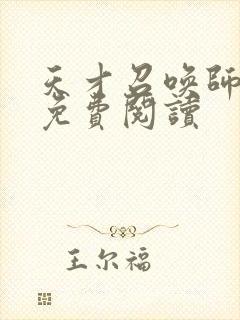 天才召唤師
免費閱讀
王尔福